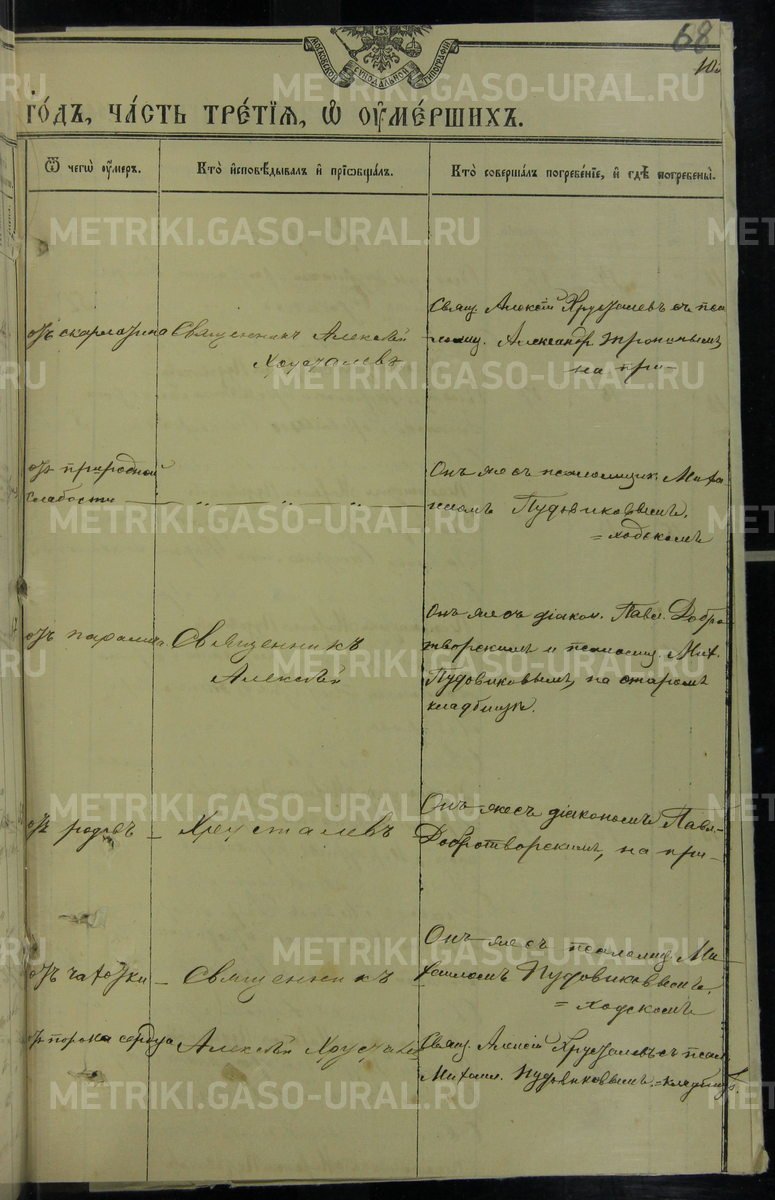 68
МОСКОВСКОЙ СѴНОДАЛЬНОЙ ТИПОГРАФІИ
го́дъ, ча́сть тре́тїѧ, ѡ҆ оу҆ме́ршихъ.
Ѿ чегѡ̀ оу҆́меръ.
Кто̀ и҆сповѣ́дывалъ и҆ прїѡбща́лъ.
Кто̀ соверша́лъ погребе́нїе, и҆ гдѣ̀ погребены̀.
отъ скарлатина
Священникъ Алексѣй
Хрусталевъ
Свящ. Алексій Хрусталевъ съ пса
ломщ. Александр. Тропинымъ,
на при-
отъ природной
слабости
Онъ же съ псаломщик. Миха
иломъ Пудовиковымъ,
=ходскомъ
отъ паралича
Священникъ
Алексѣй
Онъ же съ діакон. Павл. Добро
творскимъ и псаломщ. Мих.
Пудовиковымъ, на старомъ
кладбищѣ.
отъ родовъ
Хрусталевъ
Онъ же съ діакономъ Павл.
Добротворскимъ, на при-
отъ чахотки
Священникъ
Онъ же съ псаломщ. Ми-
хаиломъ Пудовиковымъ,
=ходскомъ
отъ порока сердца
Алексѣй Хрусталев
Свящ. Алексій Хрусталевъ съ псал.
Михаил. Пудовиковымъ. =кладбищѣ.
METRIKI.GASO-URAL.RU